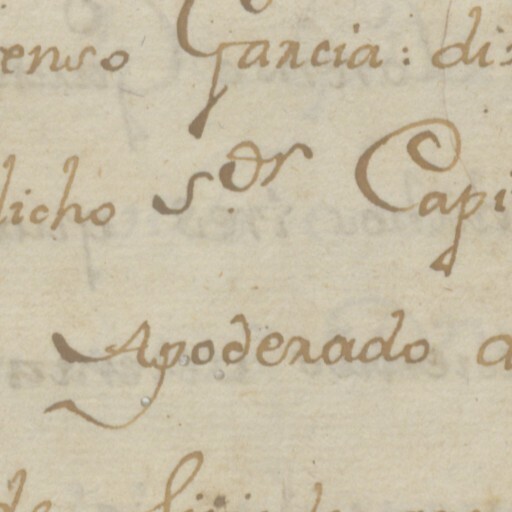 enso Garcia: di
dicho S.or Capi
Apoderado